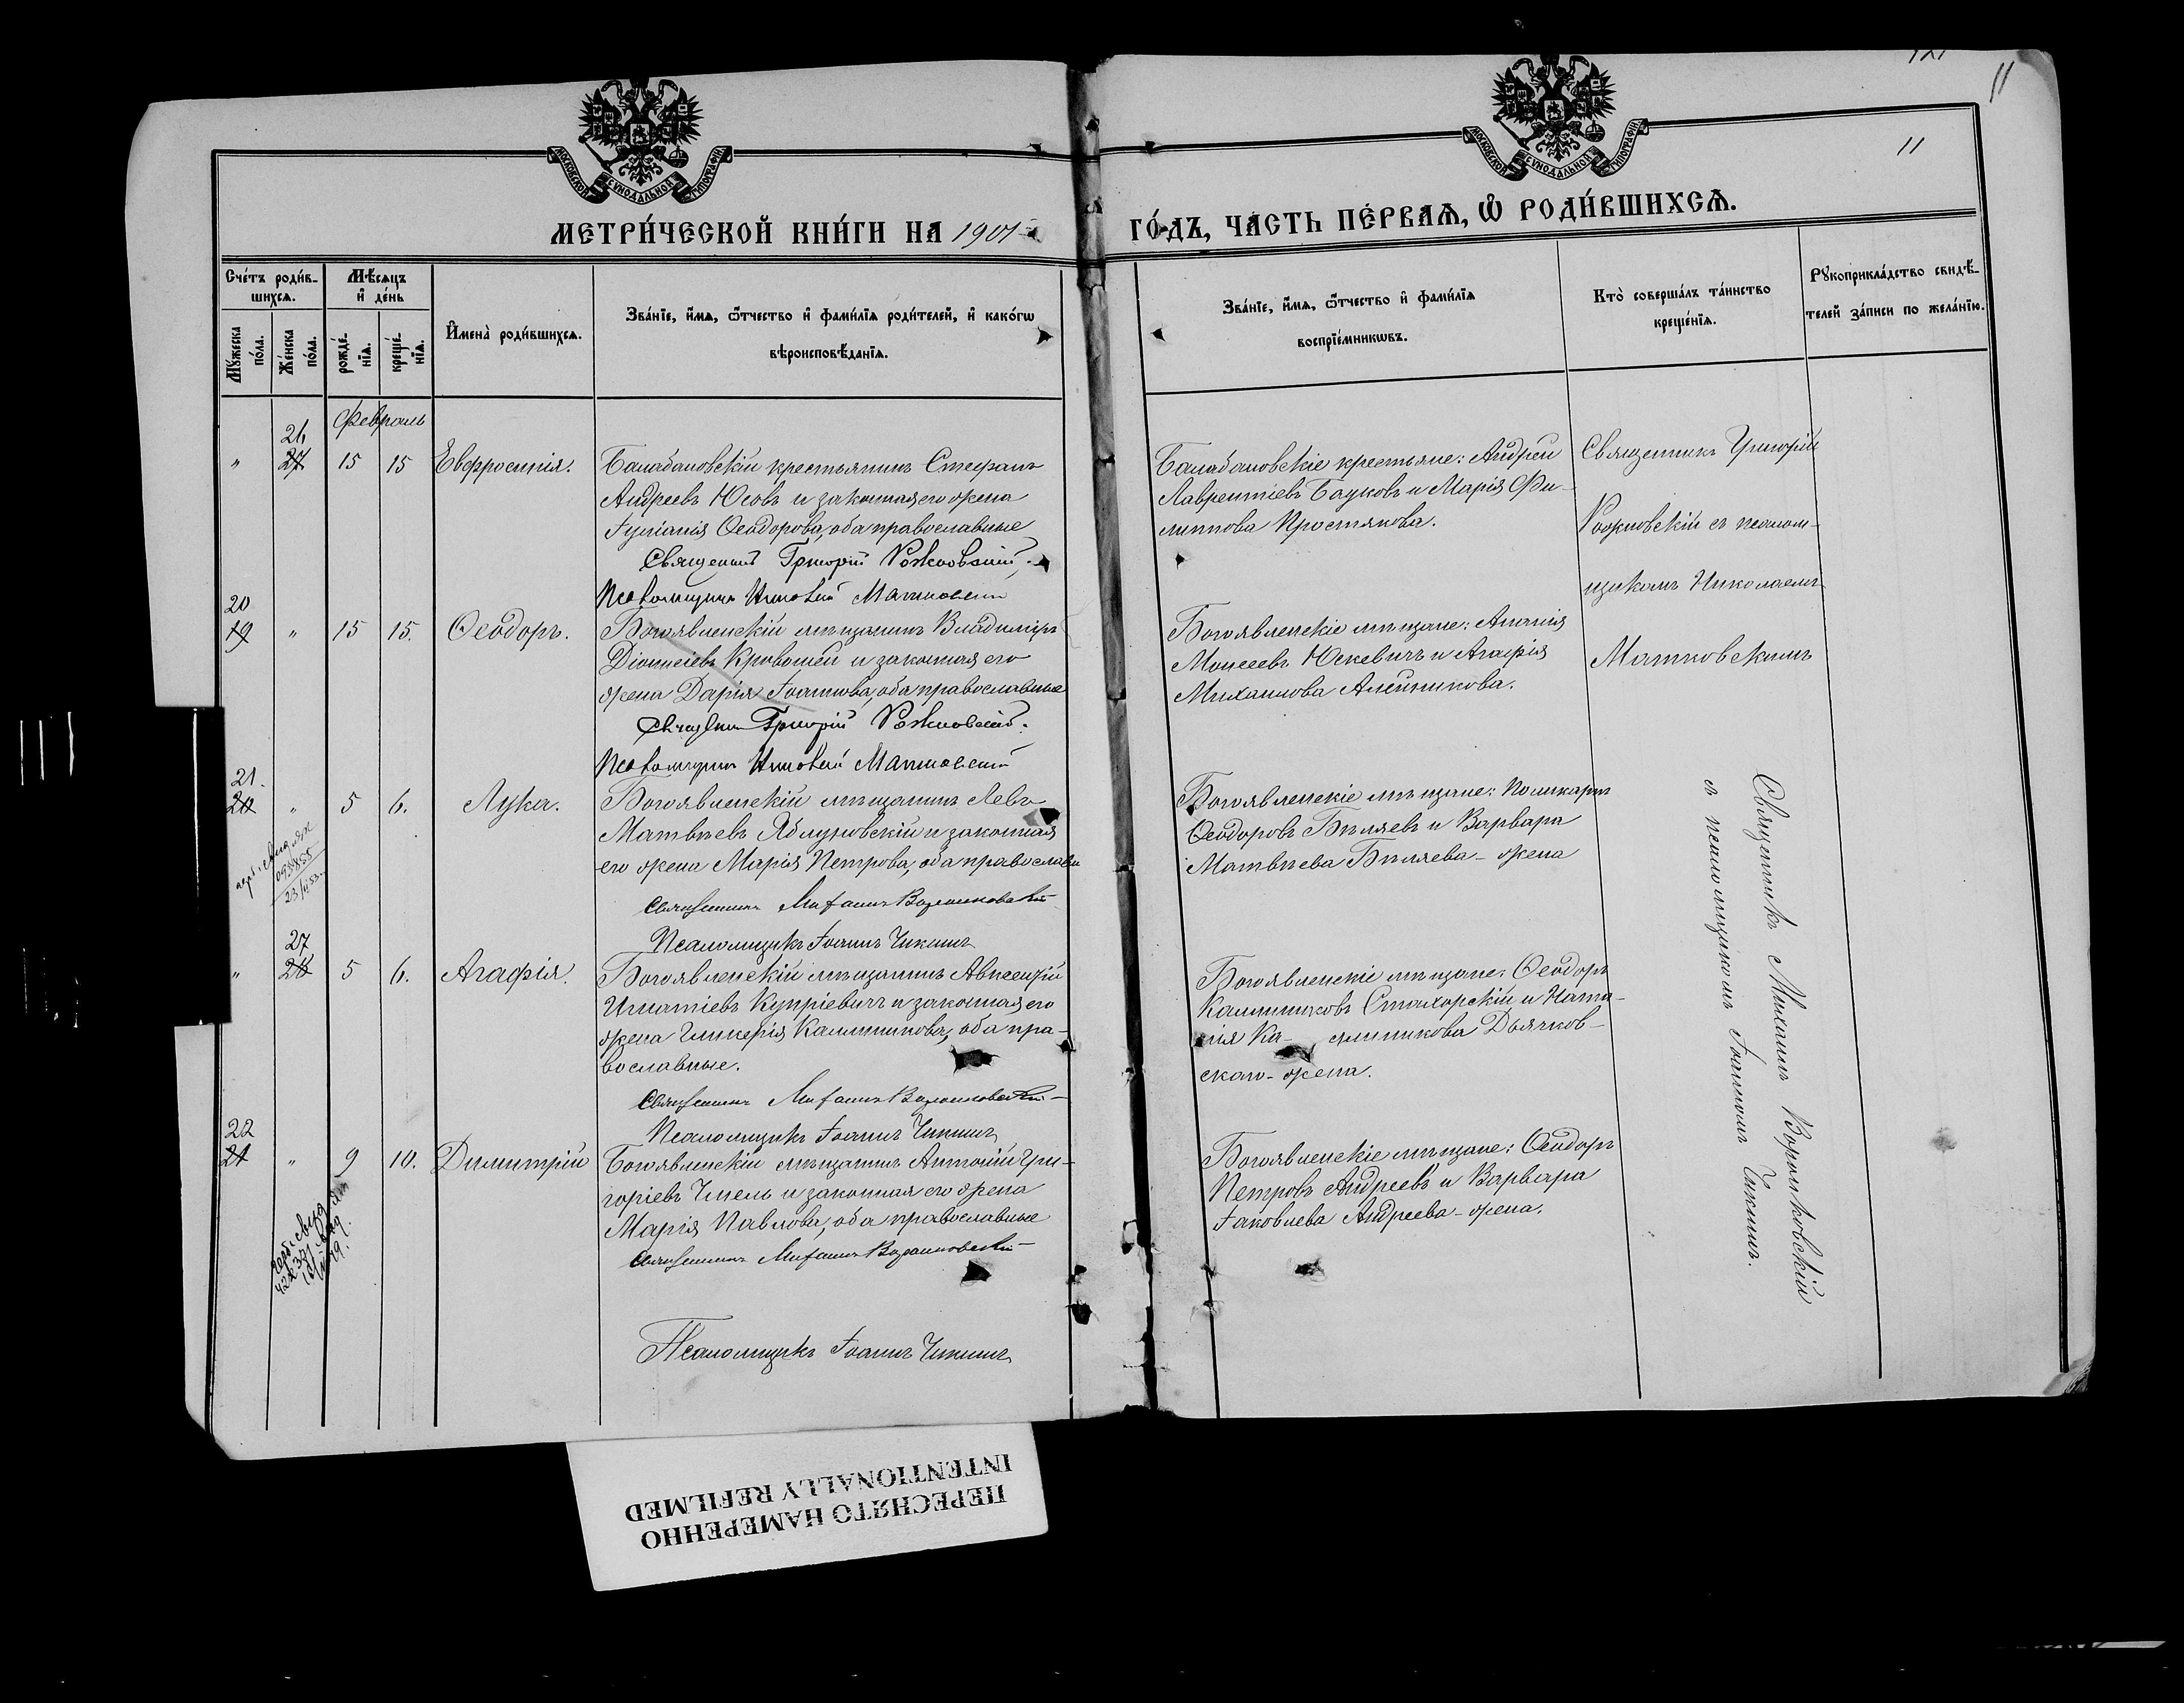 11
11
МОСКОВСКОЙ СѴНОДАЛЬНОЙ ТИПОГРАФІИ
МОСКОВСКОЙ СѴНОДАЛЬНОЙ ТИПОГРАФІИ
МЕТРИ́ЧЕСКОЙ КНИ́ГИ НА 1901
ГО́ДЪ, ЧА́СТЬ ПЕ́РВАѦ, Ѡ҆ РОДИ́ВШИХСѦ.
Сче́тъ роди́в-
шихсѧ.
Мꙋ́жеска по́ла.
Же́нска по́ла.
Мѣ́сѧцъ и҆ де́нь
рожде́-нїѧ.
креще́-нїѧ.
И҆мена̀ роди́вшихсѧ.
Зва́нїе, и҆́мѧ, ѻ҆́тчество и҆ фами́лїѧ роди́телей, и҆ како́гѡ
вѣроисповѣ́данїѧ.
Зва́нїе, и҆́мѧ, ѻ҆́тчество и҆ фами́лїѧ
воспрїе́мникѡвъ.
Кто̀ соверша́лъ та́инство
креще́нїѧ.
Рꙋкоприкла́дство свидѣ́-
телей за́писи по жела́нїю.
Февраль
26
" 27 15 15 Евфросинія.
Балабановскій крестьянинъ Стефанъ
Андреевъ Юсовъ и законная его жена
Іуліанія Ѳеодорова, оба православные
Священникъ Григорій Рожновскій
Псаломщикъ Николай Матковскій
Балабановскіе крестьяне: Андрей
Лаврентіевъ Бауковъ и Марія Фи-
липпова Простякова.
Священникъ Григорій
Рожновскій съ псалом-
щикомъ Николаемъ
Матковскимъ
20
19 " 15 15. Ѳеодоръ.
Богоявленскій мѣщанинъ Владиміръ
Діонисіевъ Кровошей и законная его
жена Дарія Іоаннова, оба православные
Священникъ Григорій Рожновскій.
Псаломщикъ Николай Матковскій
Богоявленскіе мѣщане: Ананія
Моисеевъ Юскевичъ и Агафія
Михаилова Алейникова.
21.
20 " 5 6. Лука.
Богоявленскій мѣщанинъ Левъ
Матвѣевъ Яблуновскій и законная
его жена Марія Петрова, оба православн
Священникъ Михаилъ
Псаломщикъ Іоаннъ Чикинъ
Богоявленскіе мѣщане: Поликарпъ
Ѳеодоровъ Бѣляевъ и Варвара
Матвѣева Бѣляева - жена
Священникъ Михаилъ
съ псаломщикомъ Іоанномъ
27
" 28 5 6. Агафія.
Богоявленскій мѣщанинъ Авксентій
Игнатіевъ Купріевичъ и законная его
жена Гликерія Каллиникова, оба пра-
вославные.
Священникъ Михаилъ
Псаломщикъ Іоаннъ Чикинъ
Богоявленскіе мѣщане: Ѳеодоръ
Каллиниковъ Стахорскій и Ната-
лія Ка- ллиникова Дьячков-
скаго - жена.
22
21 " 9 10. Димитрій
Богоявленскій мѣщанинъ Антоній Гри-
горіевъ Чмель и законная его жена
Марія Павлова, оба православные
Священникъ Михаилъ
Псаломщикъ Іоаннъ Чикинъ
Богоявленскіе мѣщане: Ѳеодоръ
Петровъ Андреевъ и Варвара
Іаковлева Андреева - жена.
ПЕРЕСНЯТО НАМЕРЕННО
INTENTIONALLY REFILMED